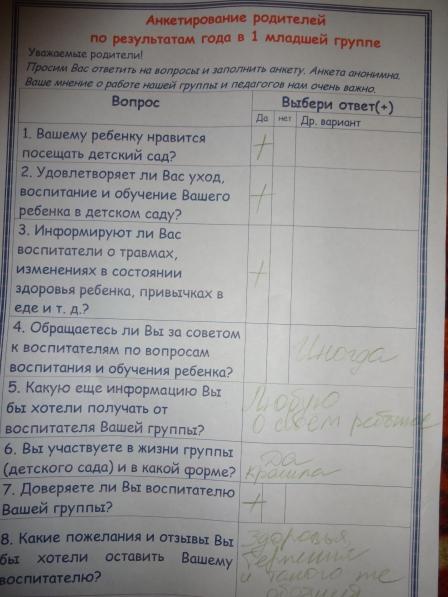 Анкетирование родителей
по результатам года в 1 младшей группе
Уважаемые родители!
Просим Вас ответить на вопросы и заполнить анкету. Анкета анонимна.
Ваше мнение о работе нашей группы и педагогов нам очень важно.
Вопрос
Выбери ответ(+)
Да нет Др. вариант
1. Вашему ребенку нравится
посещать детский сад?
+
2. Удовлетворяет ли Вас уход,
воспитание и обучение Вашего
ребенка в детском саду?
+
3. Информируют ли Вас
воспитатели о травмах,
изменениях в состоянии
здоровья ребенка, привычках в
еде и т. д.?
+
4. Обращаетесь ли Вы за советом
к воспитателям по вопросам
воспитания и обучения ребенка?
Иногда
5. Какую еще информацию Вы
бы хотели получать от
воспитателя Вашей группы?
Любую
о своем ребенке
6. Вы участвуете в жизни группы
(детского сада) и в какой форме?
Да
красила
7. Доверяете ли Вы воспитателю
Вашей группы?
+
8. Какие пожелания и отзывы Вы
бы хотели оставить Вашему
воспитателю?
Здоровья,
терпения
и такого же